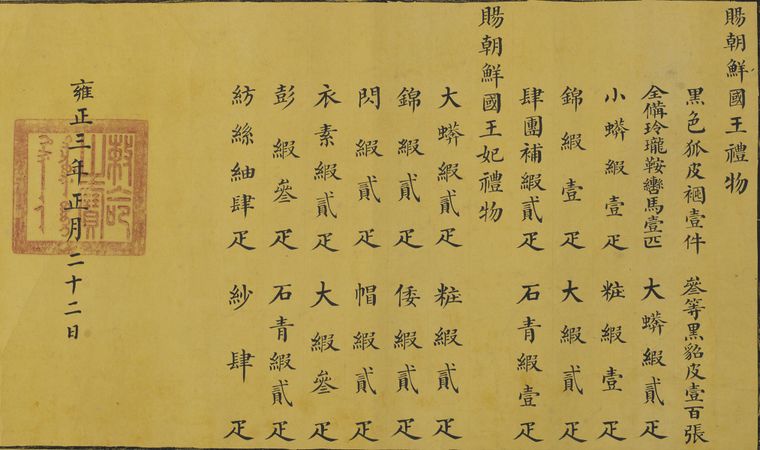 賜朝鮮國王禮物
黑色狐皮裀壹件 參等黑貂皮壹百張
全備玲瓏鞍轡馬壹匹 大蟒緞貳疋
小蟒緞壹疋 粧緞壹疋
錦緞壹疋 大緞貳疋
肆團補緞貳疋 石青緞壹疋
賜朝鮮國王妃禮物
大蟒緞貳疋 粧緞貳疋
錦緞貳疋 倭緞貳疋
閃緞貳疋 帽緞貳疋
衣素緞貳疋 大緞參疋
彭緞參疋 石青緞貳疋
紡絲紬肆疋 紗肆疋
雍正三年正月二十二日
敕命之寶